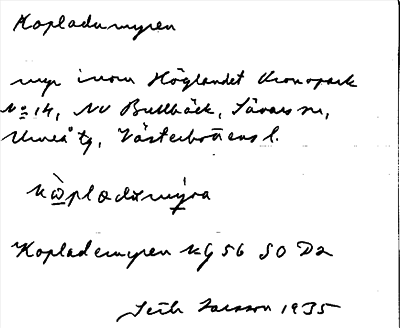 Kopladumyren
myr inom Höglandet Kronopark
No 14, NV Bullbäck, Sävars sn,
Umeå tg, Västerbottens l.
Kopladumyren KG 56 SO D2
Larsson 1935